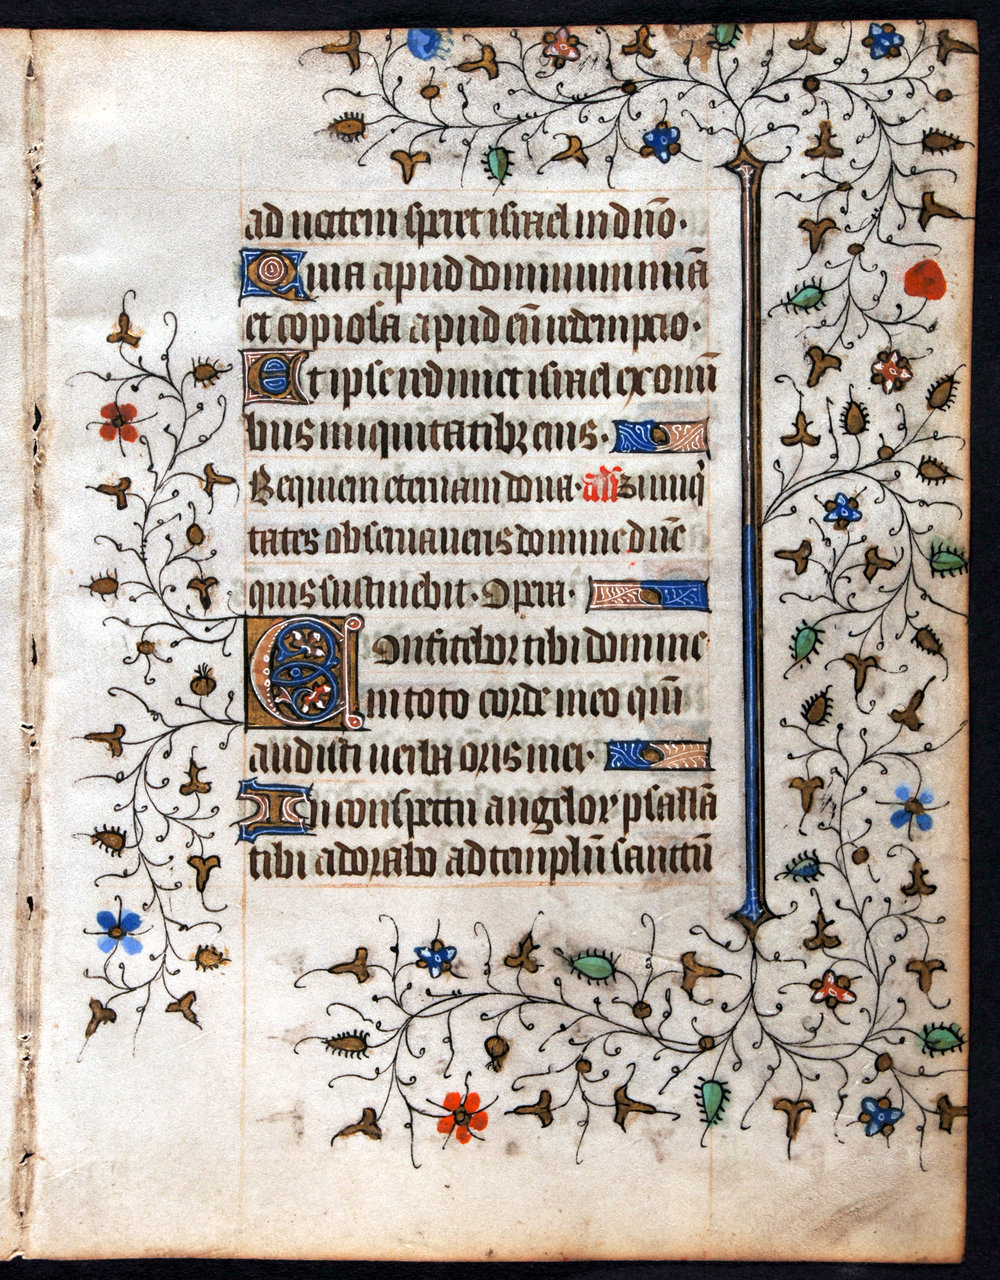 ad noctem speret israel in dn̄o.
Quia apud dominum mīa
et copiosa apud eū redempcio.
Et ipse redimet israel ex omī
bus iniquitatibꝫ eius.
Requiem eternam dona. añ Si iniq̄
tates obseruaueris domine dn̄e
quis sustinebit. Opera.
Confitebor tibi domine
in toto corde meo qm̄
audisti uerba oris mei.
In conspectu angeloꝝ psallā
tibi adorabo ad templū sanctū